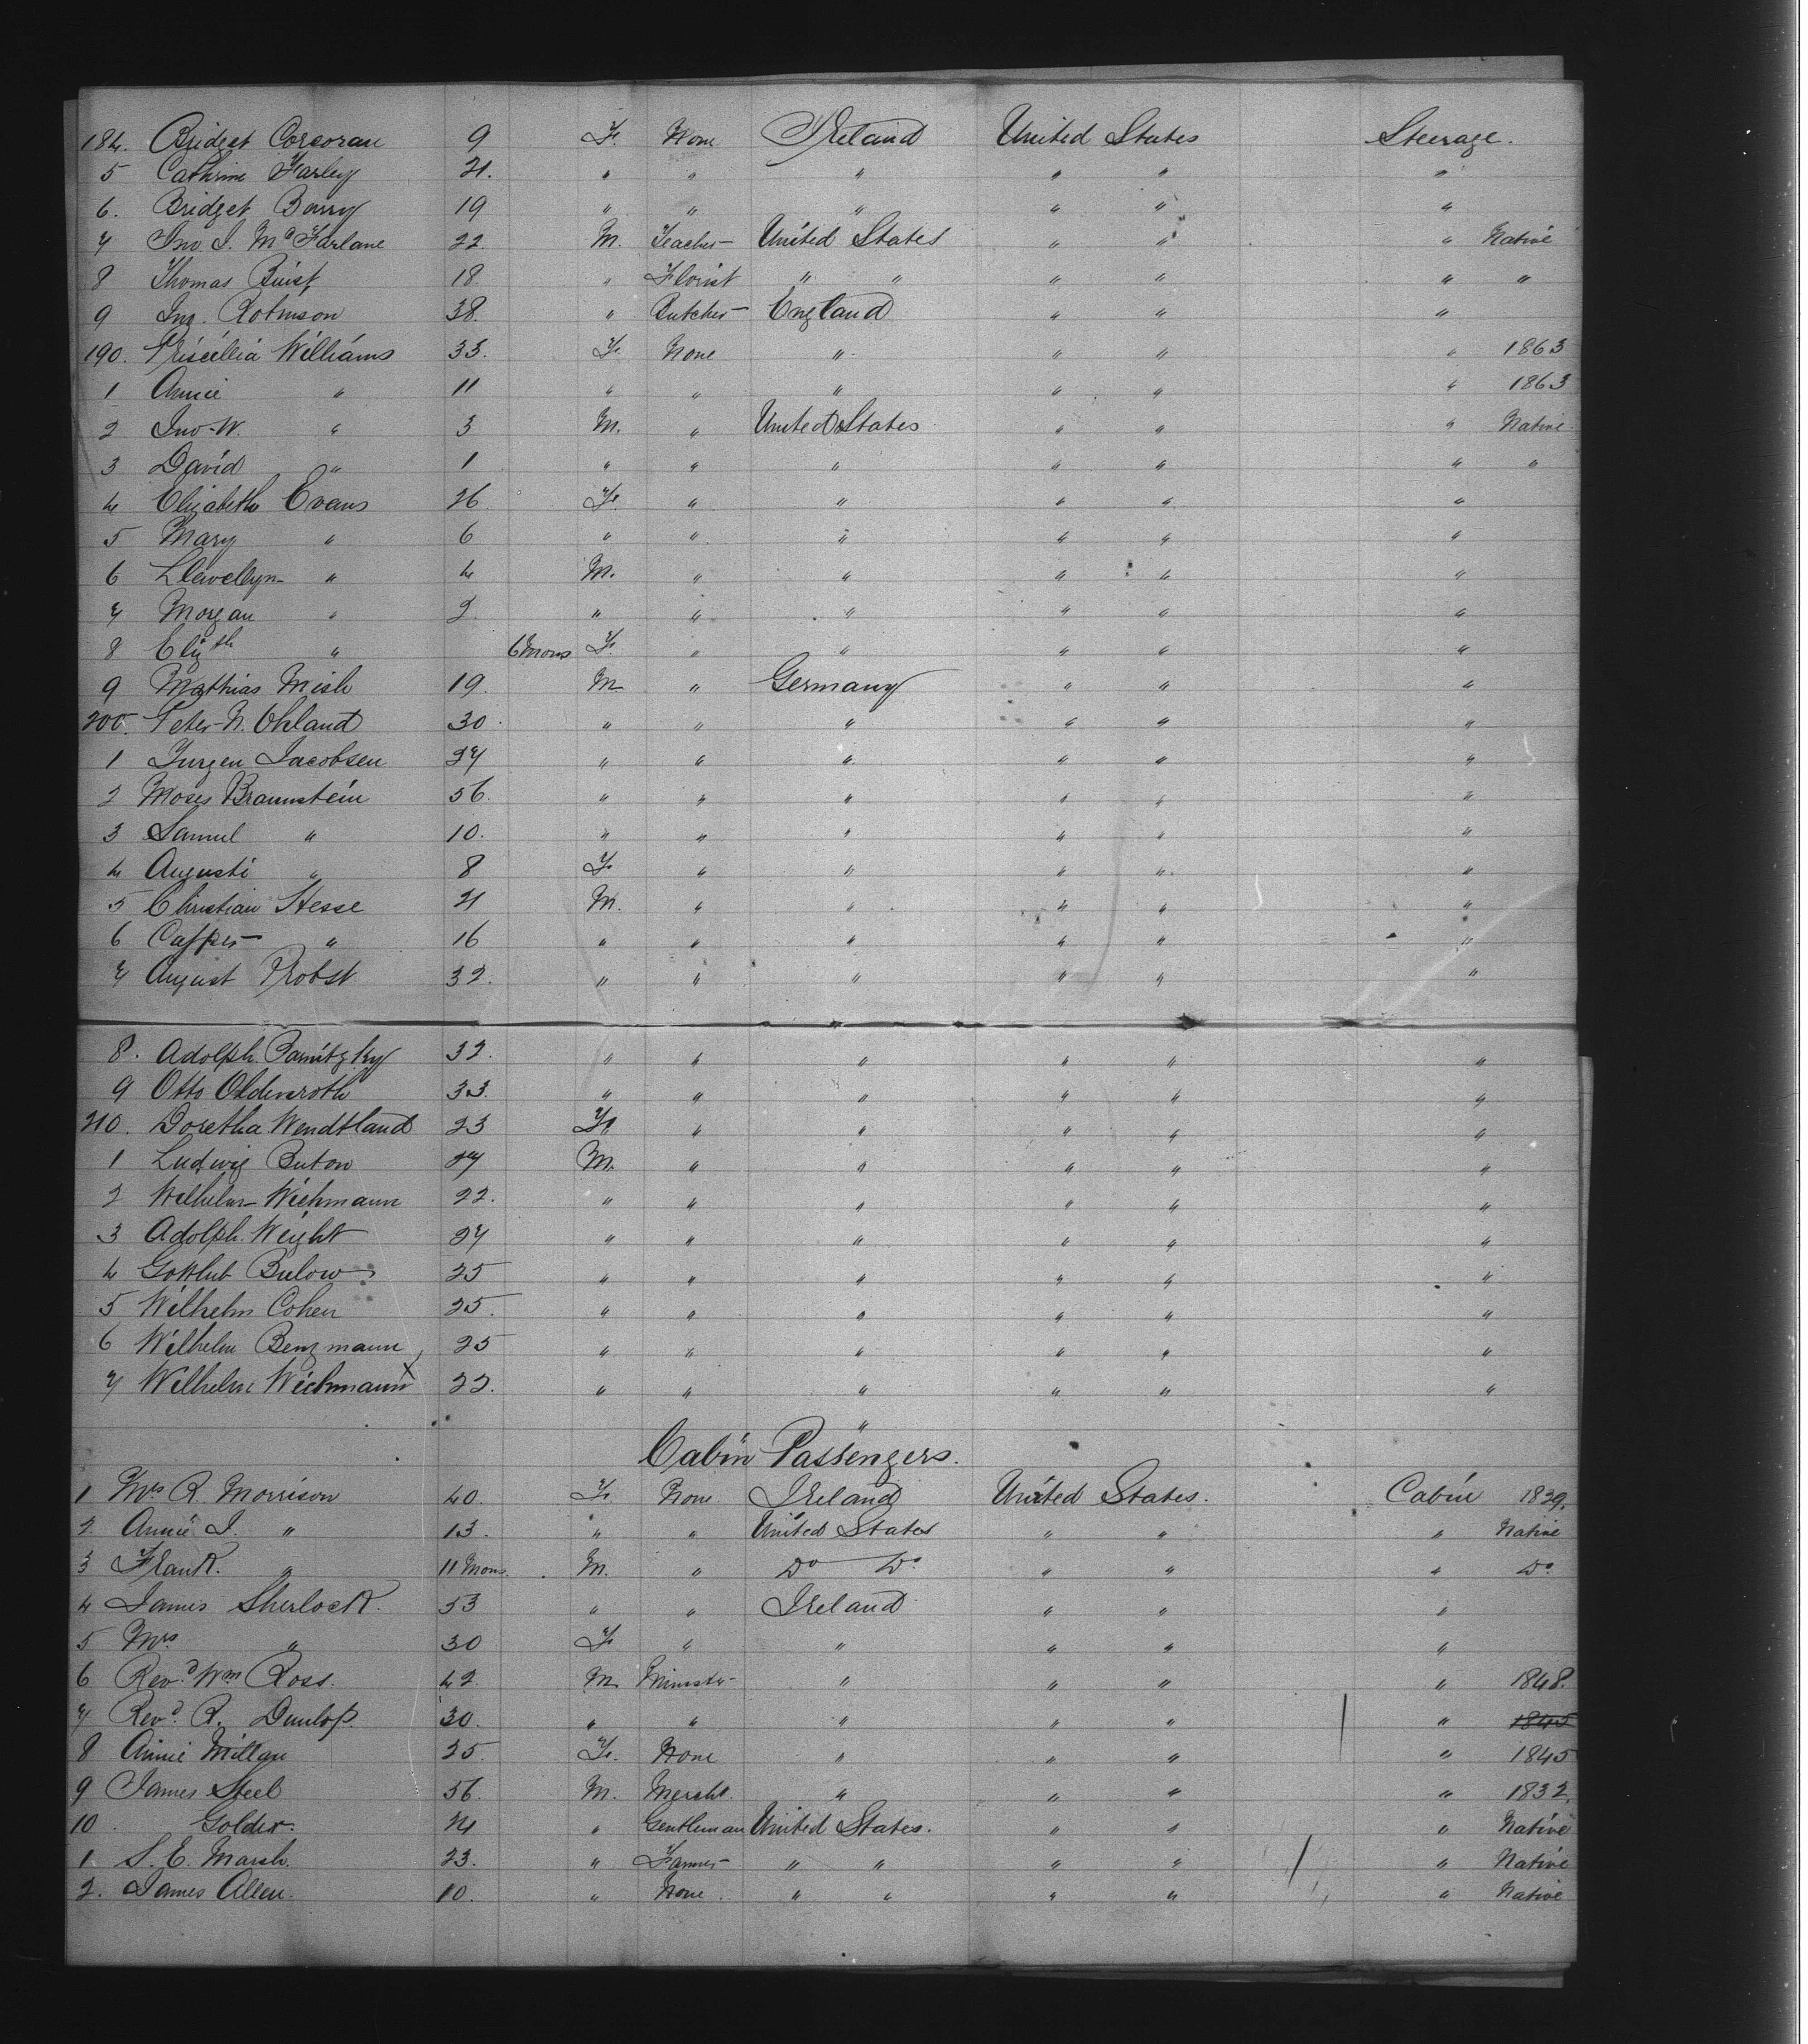 184. Bridget Corcoran 9 F. None Ireland United States Steerage.
5 Cathrine Farley 21. " " " " " "
6. Bridget Barry 19 " " " " " "
7 Jno J. McFarlane 22 M. Teacher United States " " " Native
8 Thomas Buist 18 " Florist " " " " " "
9 Jno. Robinson 38. " Butcher England " " "
190. Priscillia Williams 33. F. None " " " " 1863
1 Annie " 11 " " " " " " 1863
2 Jno. W. " 3 M. " United States " " " Native
3 David " 1 " " " " " " "
4 Elizabeth Evans 26 F. " " " " "
5 Mary " 6 " " " " " "
6 Llewellyn " 4 M. " " " " "
7 Morgan " 2 " " " " " "
8 Elizth " 6 Mons F. " " " " "
9 Mathias Mish 19. M " Germany " " "
200. Peter N. Ohland 30 " " " " " "
1 Jurgen Jacobsen 27 " " " " " "
2 Moses Braunstein 56. " " " " " "
3 Samul " 10. " " " " " "
4 Augusti " 8 F. " " " " "
5 Christian Hesse 21 M. " " " " "
6 Casper " 16 " " " " " "
7 August Probst 32. " " " " " "
8. Adolph. 32. " " " " " "
9 Otto Oldenroth 33. " " " " " "
210. Doretha Wendtland 23 F. " " " " "
1 Ludwig Buton 27 M. " " " " "
2 Wilhelm Wichmann 22. " " " " " "
3 Adolph. Weight 27 " " " " " "
4 Gottlub Bulow 25 " " " " " "
5 Wilhelm Cohen 25. " " " " " "
6 Wilhelm Benzmann 25 " " " " " "
7 Wilhelm Wichmann X 22. " " " " " "
"
Cabin Passengers.
1 Mrs R. Morrison 40. F. None Ireland United States. Cabin 1839.
2. Annie J. " 13. " " United States " " " Native
3 Frank. " 11 Mons. M. " Do Do. " " " Do.
4 James Sherlock. 53 " " Ireland " " "
5 Mrs " 30 F. " " " " "
6 Revd. Wm Ross. 42. M. Minister " " " " 1848.
7 Revd. R. Dunlop. 30. " " " " " " 1845
8 Annie Millan 25. F. None " " " " 1845
9 James Steel 56. M. Mercht. " " " " 1832.
10. Golder. 21 " Gentleman United States. " " " Native
1. S. E. Marsh. 23. " Farmer " " " " " Native
2. James Allen. 10. " None. " " " " " Native